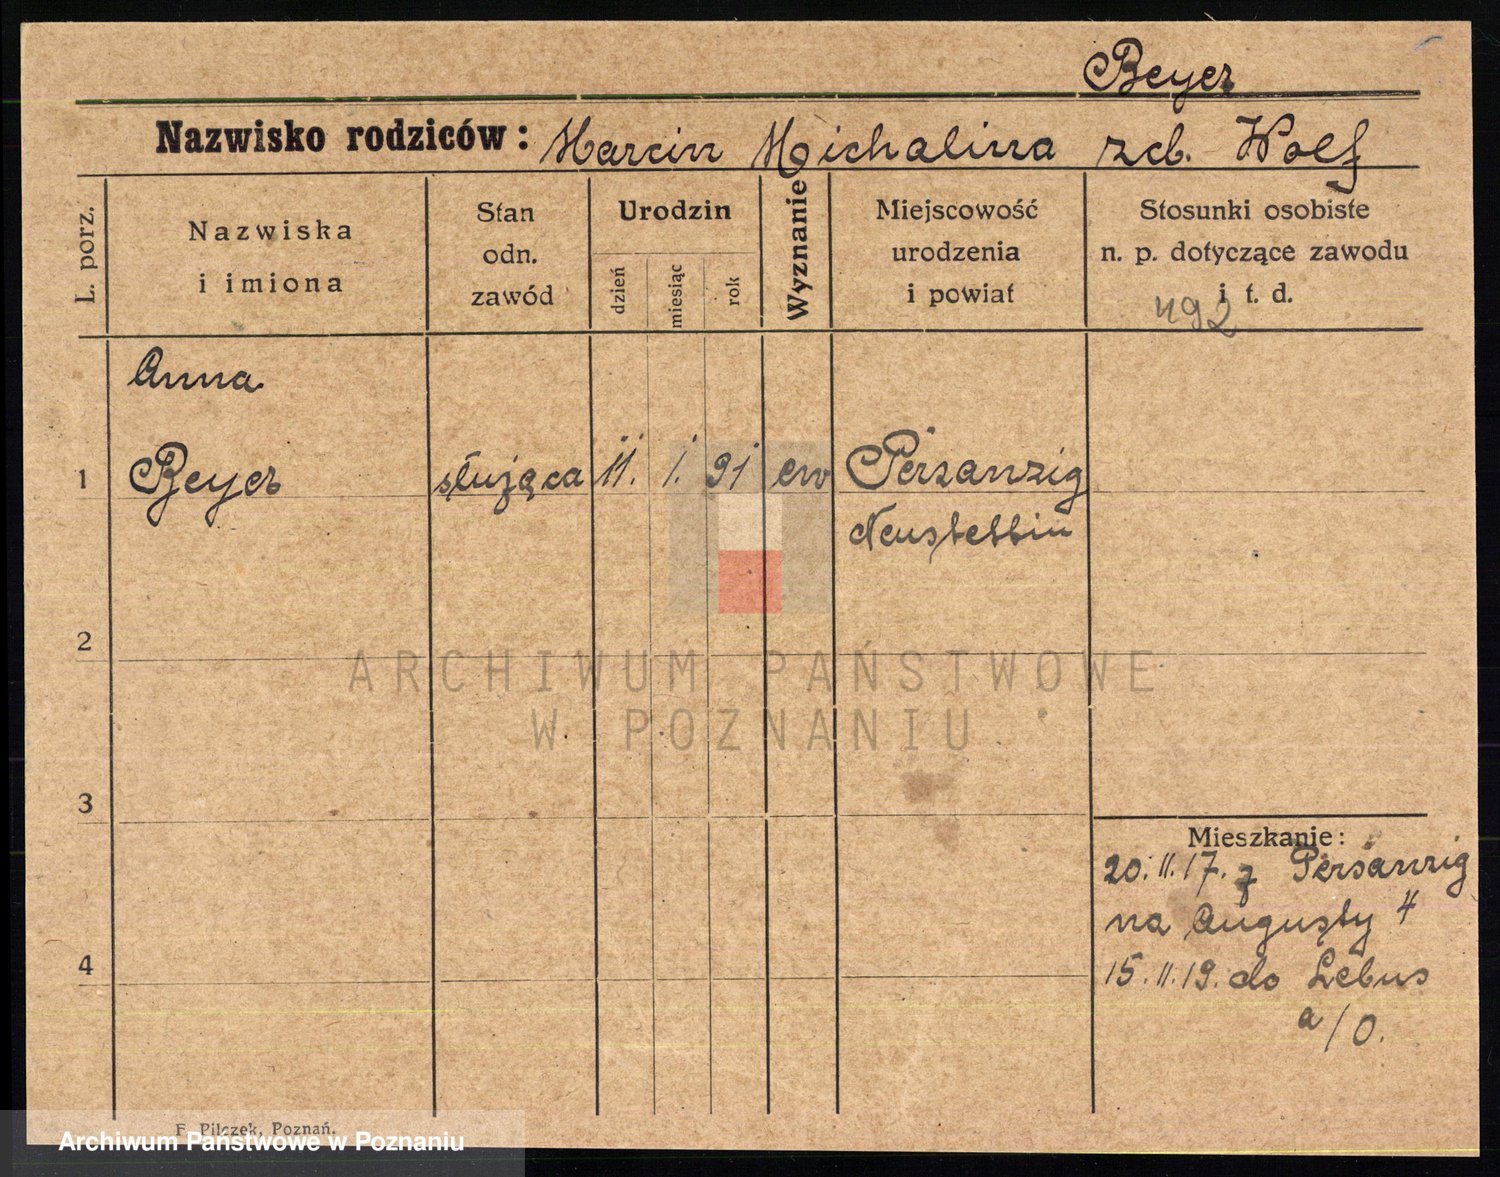 Beyer
Nazwisko rodziców: Marcin Michalina zd. Wolf
L. porz.
Nazwiska
i imiona
Stan
odn.
zawód
Urodzin
dzień
miesiąc
rok
Wyznanie
Miejscowość
urodzenia
i powiat
Stosunki osobiste
n. p. dotyczące zawodu
i t. d.
492
Anna
1 Beyer służąca 11. 1. 91 ew Persanzig
Neustettin
2
ARCHIWUM PAŃSTWOWE
W POZNANIU
3
Mieszkanie:
20. 11. 17. z Persanzig
na Augusty 4
4 15. 11. 19. do Lebus
a/O.
F. Pilczek, Poznań.
Archiwum Państwowe w Poznaniu